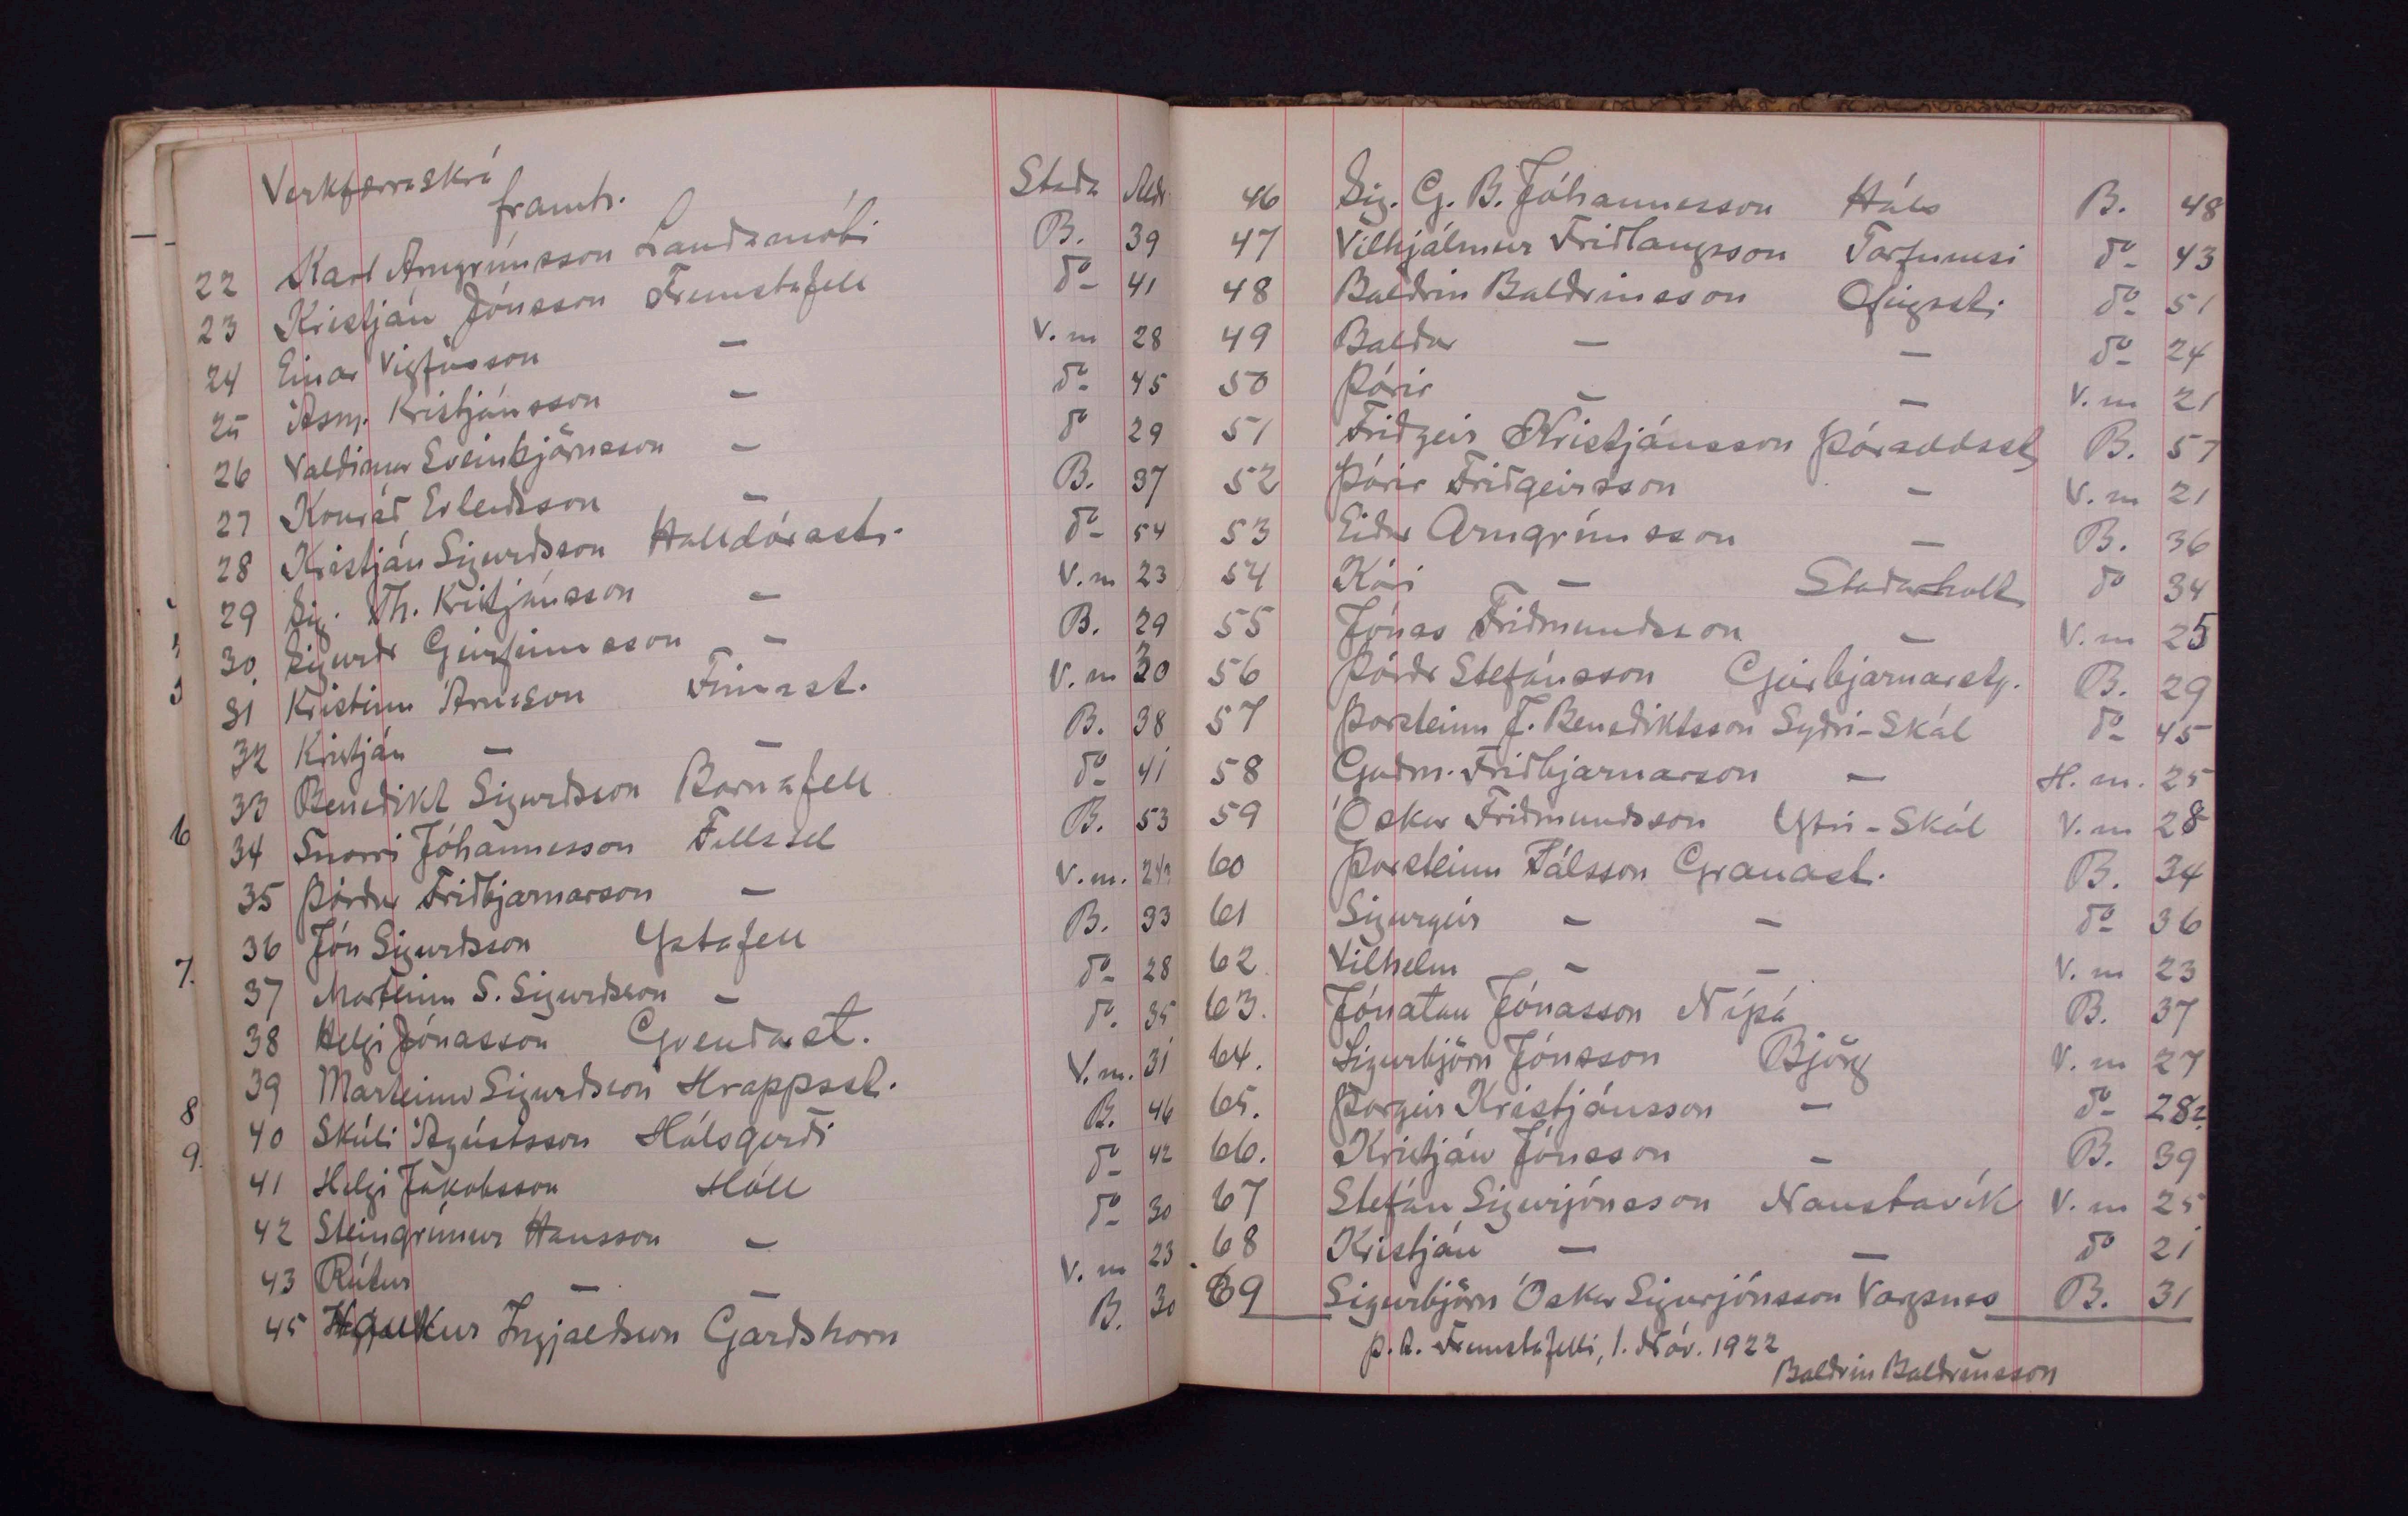 Verkfærraskrá
framh. Stada Aldr.
22 Karl Arngrímsson Landamóti B. 39
23 Kristján Jónsson Fremstafell do- 41
24 Einar Vigfússon - V.m 28
25 Ásm. Kristjánsson - do- 45
26 Valdimar Sveinbjörnsson - do 29
27 Konráð Erlendsson - B. 37
28 Kristján Sigurðsson Halldórsst. do- 54
29 Sig. Th. Kristjánsson - V.m 23
30. Sigurðr Geirfinnsson - B. 29
31 Kristinn Árnason Finnsst. V.m 30
32 Kristján - - B. 38
33 Benedikt Sigurðsson Barnafell do- 41
34 Snorri Jóhannesson Fellssel B. 53
35 Þórður Friðbjarnarson - V.m. 24?
36 Jón Sigurðsson Ystafell B. 33
37 Marteinn S. Sigurðsson - do- 28
38 Helgi Jónasson Gvendarst. do. 35
39 Marteinn Sigurðsson Hrappsst. V.m. 31
40 Skúli Ágústsson Hálsgerði B. 46
41 Helgi Jakobsson Hóll do- 42
42 Steingrímur Hansson - do- 30
43 Rútur - - V.m 23
45 Haukur Ingjaldsson Garðshorn B. 30
6
7.
8
9.
46 Sig. G. B. Jóhannesson Háls B. 48
47 Vilhjálmur Friðlaugsson Torfunesi do- 43
48 Baldvin Baldvinsson Ófeigsst. do- 51
49 Baldur - - do- 24
50 Þórir - - V.m 21
51 Friðgeir Kristjánsson Þóroddsst. B. 57
52 Þórir Friðgeirsson - V.m 21
53 Eiður Arngrímsson - B. 36
54 Kári - Staðarholt do 34
55 Jónas Friðmundsson - V.m 25
56 Þórðr Stefánsson Geirbjarnarst. B. 29
57 Þorsteinn J. Benediktsson Syðri-Skál do- 45
58 Guðm. Friðbjarnarson - H.m. 25
59 Óskar Friðmundsson Ytri-Skál V.m 28
60 Þorsteinn Pálsson Granast. B. 34
61 Sigurgeir - - do- 36
62 Vilhelm - - V.m 23
63. Jónatan Jónasson Nípá B. 37
64. Sigurbjörn Jónsson Björg V.m 27
65. Þorgeir Kristjánsson - do- 28?
66. Kristján Jónsson - B. 39
67 Stefán Sigurjónsson Naustavík V.m 25
68 Kristján - - do 21
69 Sigurbjörn Óskar Sigurjónsson Vargsnes B. 31
p.t. Fremstafelli, 1. Nóv. 1922
Baldvin Baldvinsson